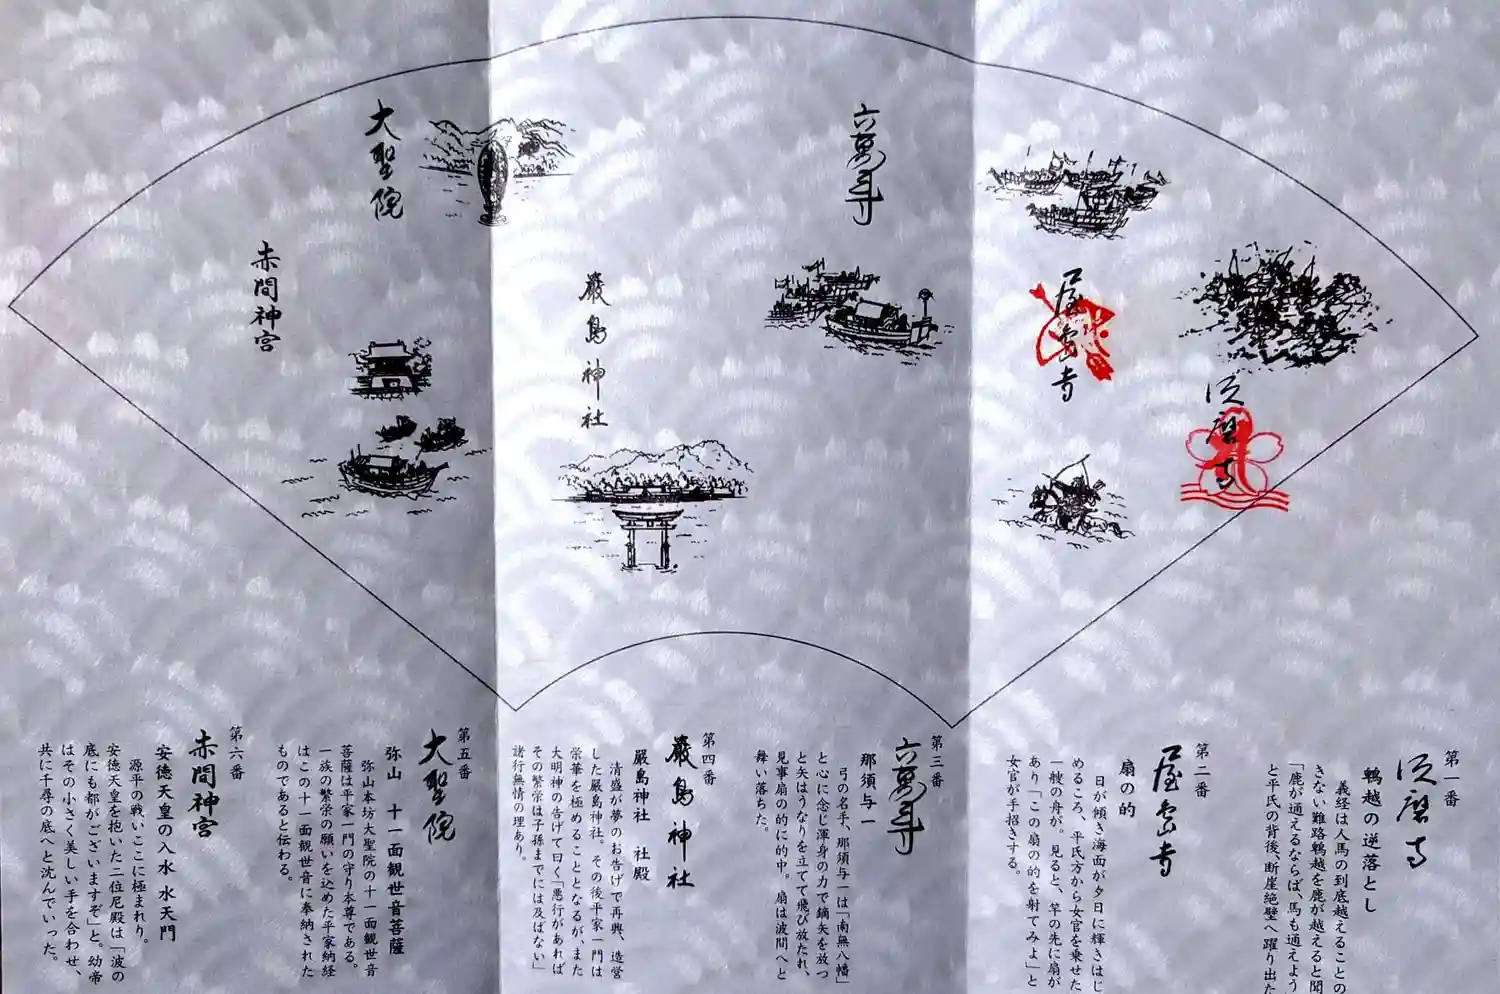 須磨寺
屋島寺
六萬寺
嚴島神社
大聖院
赤間神宮
第一番
須磨寺
鵯越の逆落とし
義経は人馬の到底越えることの
きない難路鵯越を鹿が越えると聞
「鹿が通えるならば、馬も通えよう
と平氏の背後、断崖絶壁へ躍り出た
第二番
屋島寺
扇の的
日が傾き海面が夕日に輝きはじ
めるころ、平氏方から女官を乗せた
一艘の舟が。見ると、竿の先に扇が
あり「この扇の的を射てみよ」と
女官が手招きする。
第三番
六萬寺
那須与一
弓の名手、那須与一は「南無八幡」
と心に念じ渾身の力で鏑矢を放つ
と矢はうなりを立てて飛び放たれ、
見事扇の的に的中。扇は波間へと
舞い落ちた。
第四番
嚴島神社
嚴島神社 社殿
清盛が夢のお告げで再興、造営
した嚴島神社。その後平家一門は
栄華を極めることとなるが、また
大明神の告げて曰く「悪行があれば
その繁栄は子孫までには及ばない」
諸行無情の理あり。
第五番
大聖院
弥山 十一面観世音菩薩
弥山本坊大聖院の十一面観世音
菩薩は平家一門の守り本尊である。
一族の繁栄の願いを込めた平家納経
はこの十一面観世音に奉納された
ものであると伝わる。
第六番
赤間神宮
安徳天皇の入水 水天門
源平の戦いここに極まれり。
安徳天皇を抱いた二位尼殿は「波の
底にも都がございますぞ」と。幼帝
はその小さく美しい手を合わせ、
共に千尋の底へと沈んでいった。